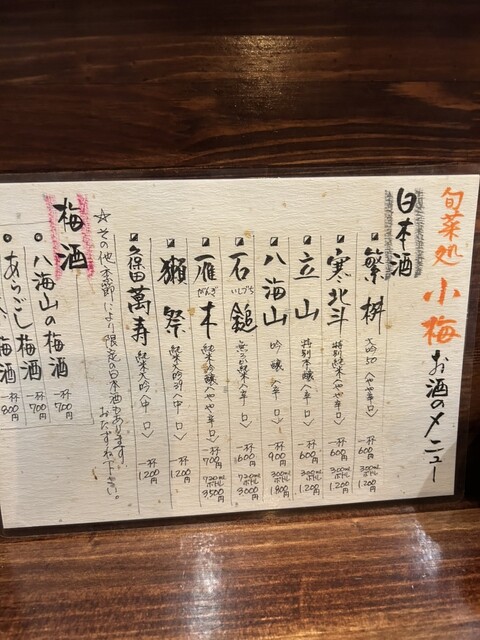 旬菜処 小梅 お酒のメニュー
日本酒
繁桝 大吟50〈やや辛口〉 一杯600円 300mlボトル1.200円
寒北斗 特別純米〈やや辛口〉 一杯600円 300mlボトル1.200円
立山 特別本醸〈辛口〉 一杯600円 300mlボトル1.200円
八海山 吟醸〈辛口〉 一杯900円 300mlボトル1.800円
石鎚 いしづち 無ろか純米〈辛口〉 一杯600円 720mlボトル3000円
雁木 がんぎ 純米吟醸〈やや辛口〉 一杯700円 720mlボトル3500円
獺祭 純米大吟39〈中口〉 一杯1.200円
久保田萬寿 純米大吟〈中口〉 一杯1.200円
☆その他季節により限定の日本酒もあります。おたずね下さい。
梅酒
八海山の梅酒 一杯700円
あらごし梅酒 一杯700円
梅酒 一杯800円